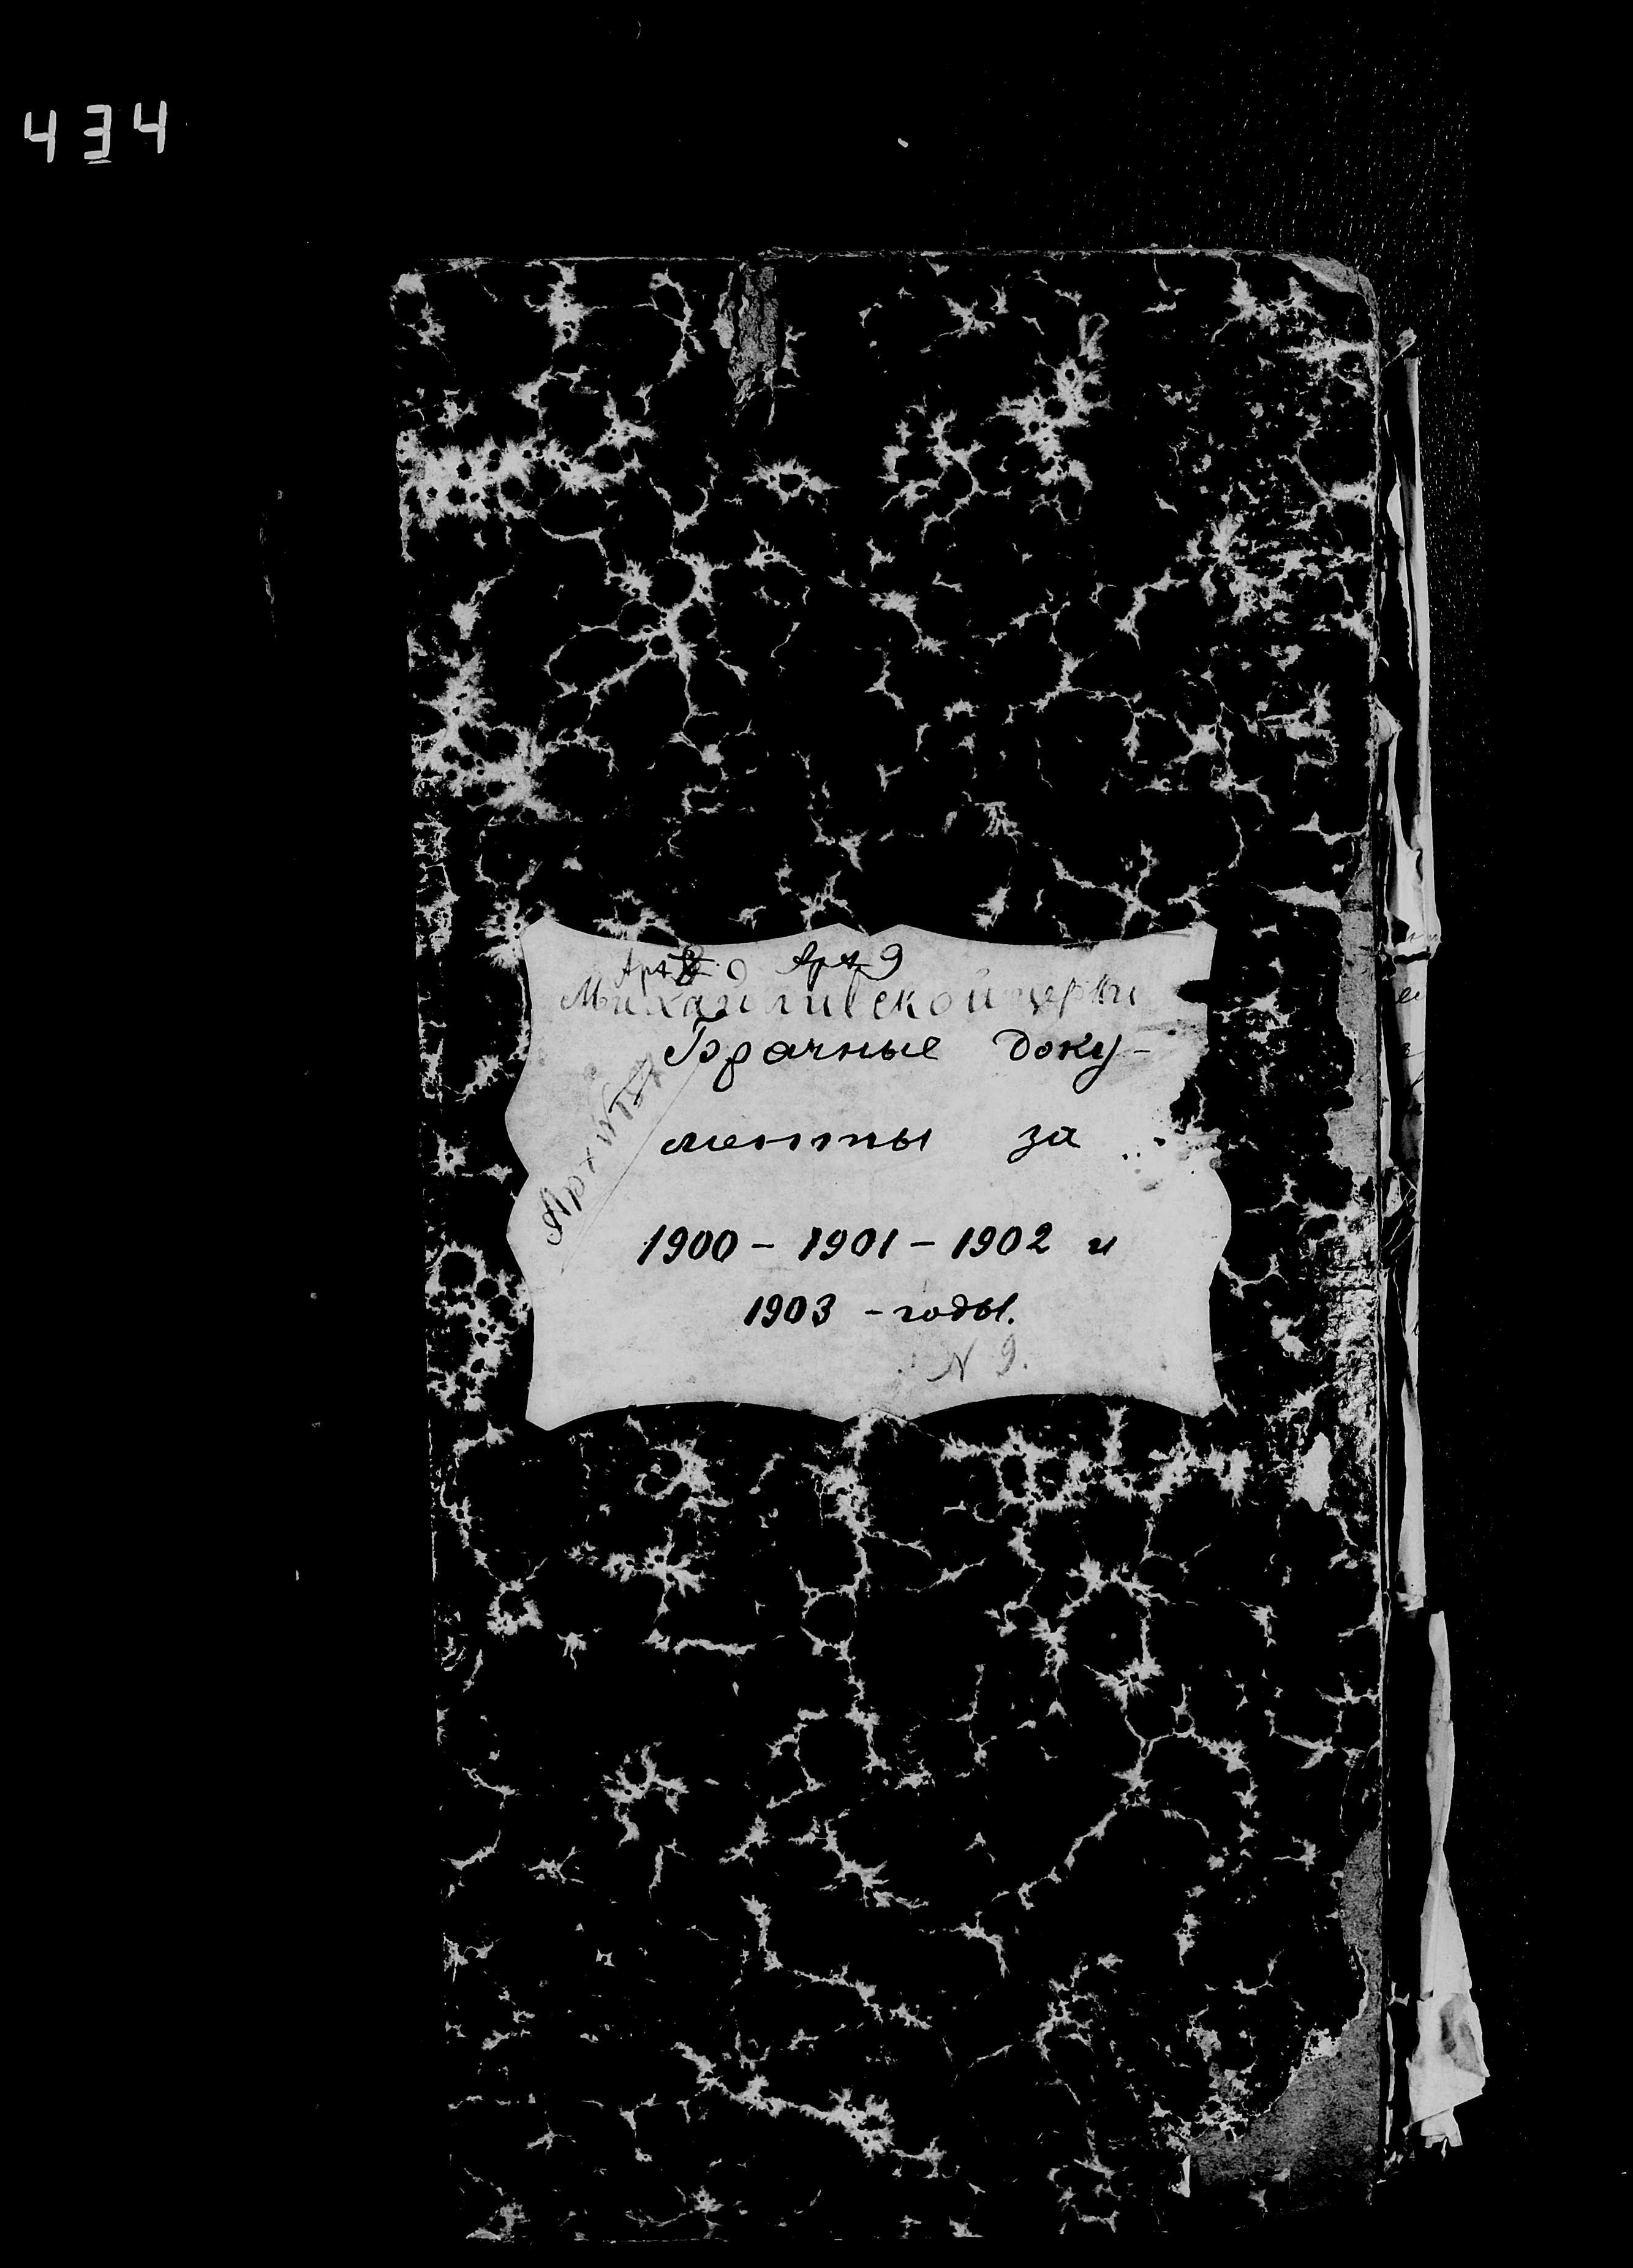 434
Арх 9
Михайливской церкви
Брачные доку-
менты за
1900 - 1901 - 1902 и
1903 - годы.
N 9.